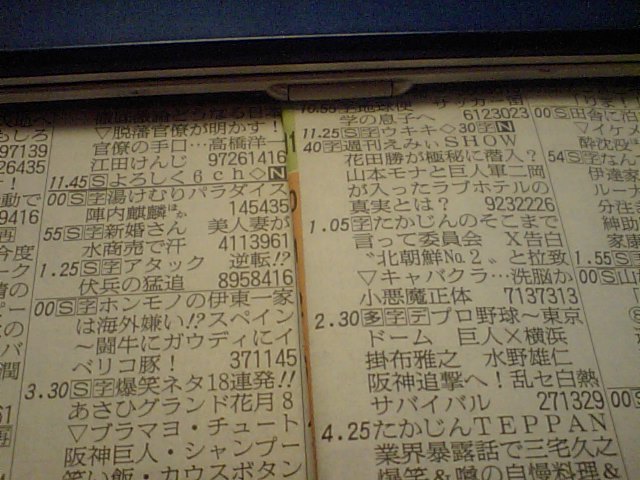 もしろ
97139
26435
動で
9416
今度
ーク
▽脱藩官僚が明かす!
官僚の手口…高橋洋一
江田けんじ 97261416
11.45Ⓢよろしく6ch◇N
00Ⓢ字湯けむりパラダイス
陣内麒麟ほか 145435
55Ⓢ字新婚さん 美人妻が
水商売で汗 4113961
1.25Ⓢ字アタック 逆転!?
伏兵の猛追 8958416
00Ⓢ字ホンモノの伊東一家
は海外嫌い!?スペイン
〜闘牛にガウディにイ
ベリコ豚! 371145
3.30Ⓢ字爆笑ネタ18連発!!
あさひグランド花月8
▽ブラマヨ・チュート
阪神巨人・シャンプー
笑い飯・カウスボタン
学の息子へ 6123023
11.25Ⓢ字ウキキ◇30字N
40字週刊えみぃSHOW
花田勝が極秘に潜入?
山本モナと巨人軍二岡
が入ったラブホテルの
真実とは? 9232226
1.05字たかじんのそこまで
言って委員会 X告白
〝北朝鮮No.2〟と拉致
▽キャバクラ…洗脳か
小悪魔正体 7137313
2.30多字デプロ野球〜東京
ドーム 巨人×横浜
掛布雅之 水野雄仁
阪神追撃へ!乱セ白熱
サバイバル 271329
4.25たかじんTEPPAN
業界暴露話で三宅久之
爆笑&噂の自慢料理&
00Ⓢ字
▽イケ
酔沈没
54Ⓢ字なん
伊達家
ループ
分注キ
紳助
家庭
1.55Ⓢ
00Ⓢ山
00Ⓢ